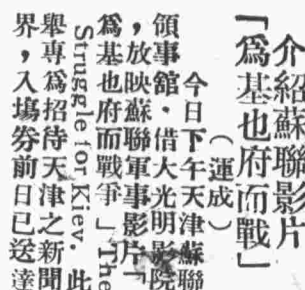 介紹蘇聯影片
「爲基也府而戰」
（運成）
今日下午天津蘇聯
領事舘．借大光明影院
，放映蘇聯軍事影片「
爲基也府而戰爭」The
Struggle for Kiev. 此
舉專爲招待天津之新聞
界，入塲券前日已送達